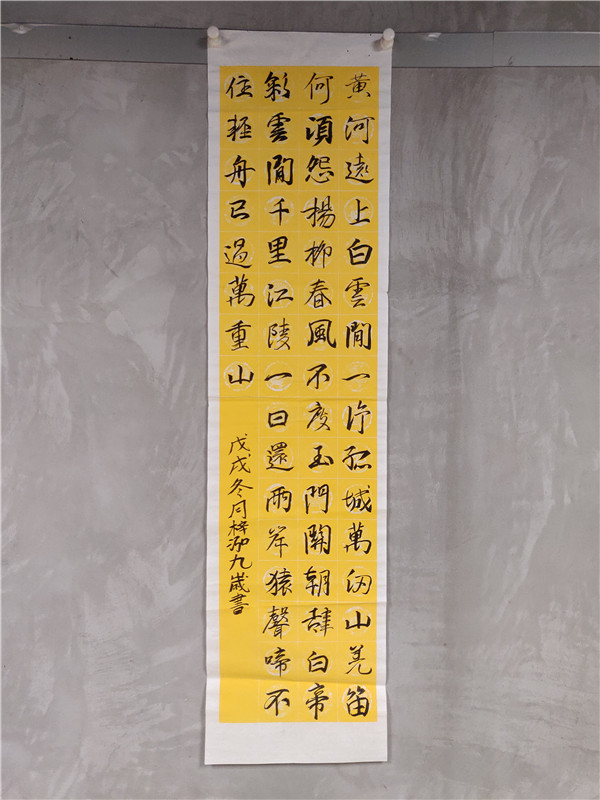 黃河遠上白雲間一片孤城萬仞山羌笛
何須怨楊柳春風不度玉門關朝辭白帝
彩雲間千里江陵一日還兩岸猿聲啼不
住輕舟已過萬重山
戊戌冬梓九歲書